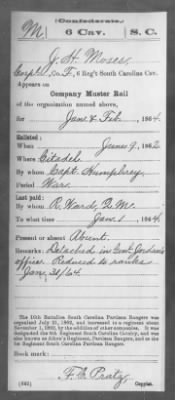 (Confederate.)
M 6 Cav. S.C.
J. H. Moses
Corpl., Co. F, 6 Reg't South Carolina Cav.
Appears on
Company Muster Roll
of the organization named above,
for Jan & Feb, 1864.
Enlisted:
When June 9, 1862
Where Citadel
By whom Capt. Humphrey
Period War
Last paid:
By whom R. Ward, Q.M.
To what time Jan. 1, 1864
Present or absent Absent.
Remarks: Detached in Genl Jordan's
office. Reduced to ranks
Jan. 31/64.
The 16th Battalion South Carolina Partisan Rangers was
organized July 21, 1862, and increased to a regiment about
November 1, 1862, by the addition of other companies. It was
designated the 6th Regiment South Carolina Cavalry, and was
also known as Aiken's Regiment, Partisan Rangers, and as the
1st Regiment South Carolina Partisan Rangers.
Book mark:
(642)
Copyist.